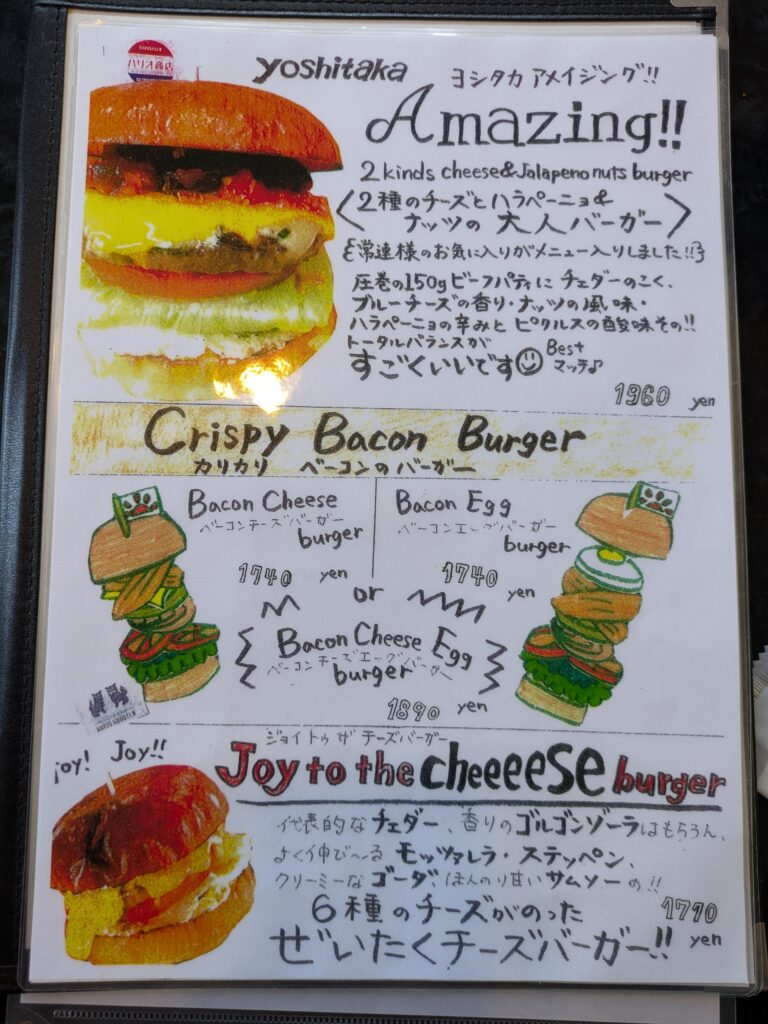 ハリオ商店
yoshitaka ヨシタカ アメイジング!!
Amazing!!
2 kinds cheese&Jalapeno nuts burger
〈2種のチーズとハラペーニョ&
ナッツの 大人バーガー〉
{常連様のお気に入りがメニュー入りしました!!}
圧巻の150gビーフパティに チェダーのこく、
ブルーチーズの香り・ナッツの風味・
ハラペーニョの辛みと ピクルスの酸味その!!
トータルバランスが
すごくいいです☺ Best マッチ♪
1960 yen
Crispy Bacon Burger
カリカリ ベーコンのバーガー
Bacon Cheese
ベーコンチーズバーガー
burger
1740 yen
Bacon Egg
ベーコンエッグバーガー
burger
1740 yen
or
Bacon Cheese Egg
ベーコンチーズエッグバーガー
burger
1890 yen
joy! Joy!!
ジョイ トゥ ザ チーズバーガー
Joy to the cheeeeSe burger
代表的なチェダー、香りのゴルゴンゾーラはもちろん、
よく伸び〜る モッツァレラ・ステッペン、
クリーミーな ゴーダ、ほんのり甘いサムソーの!!
6種のチーズがのった
ぜいたくチーズバーガー!!
1710 yen